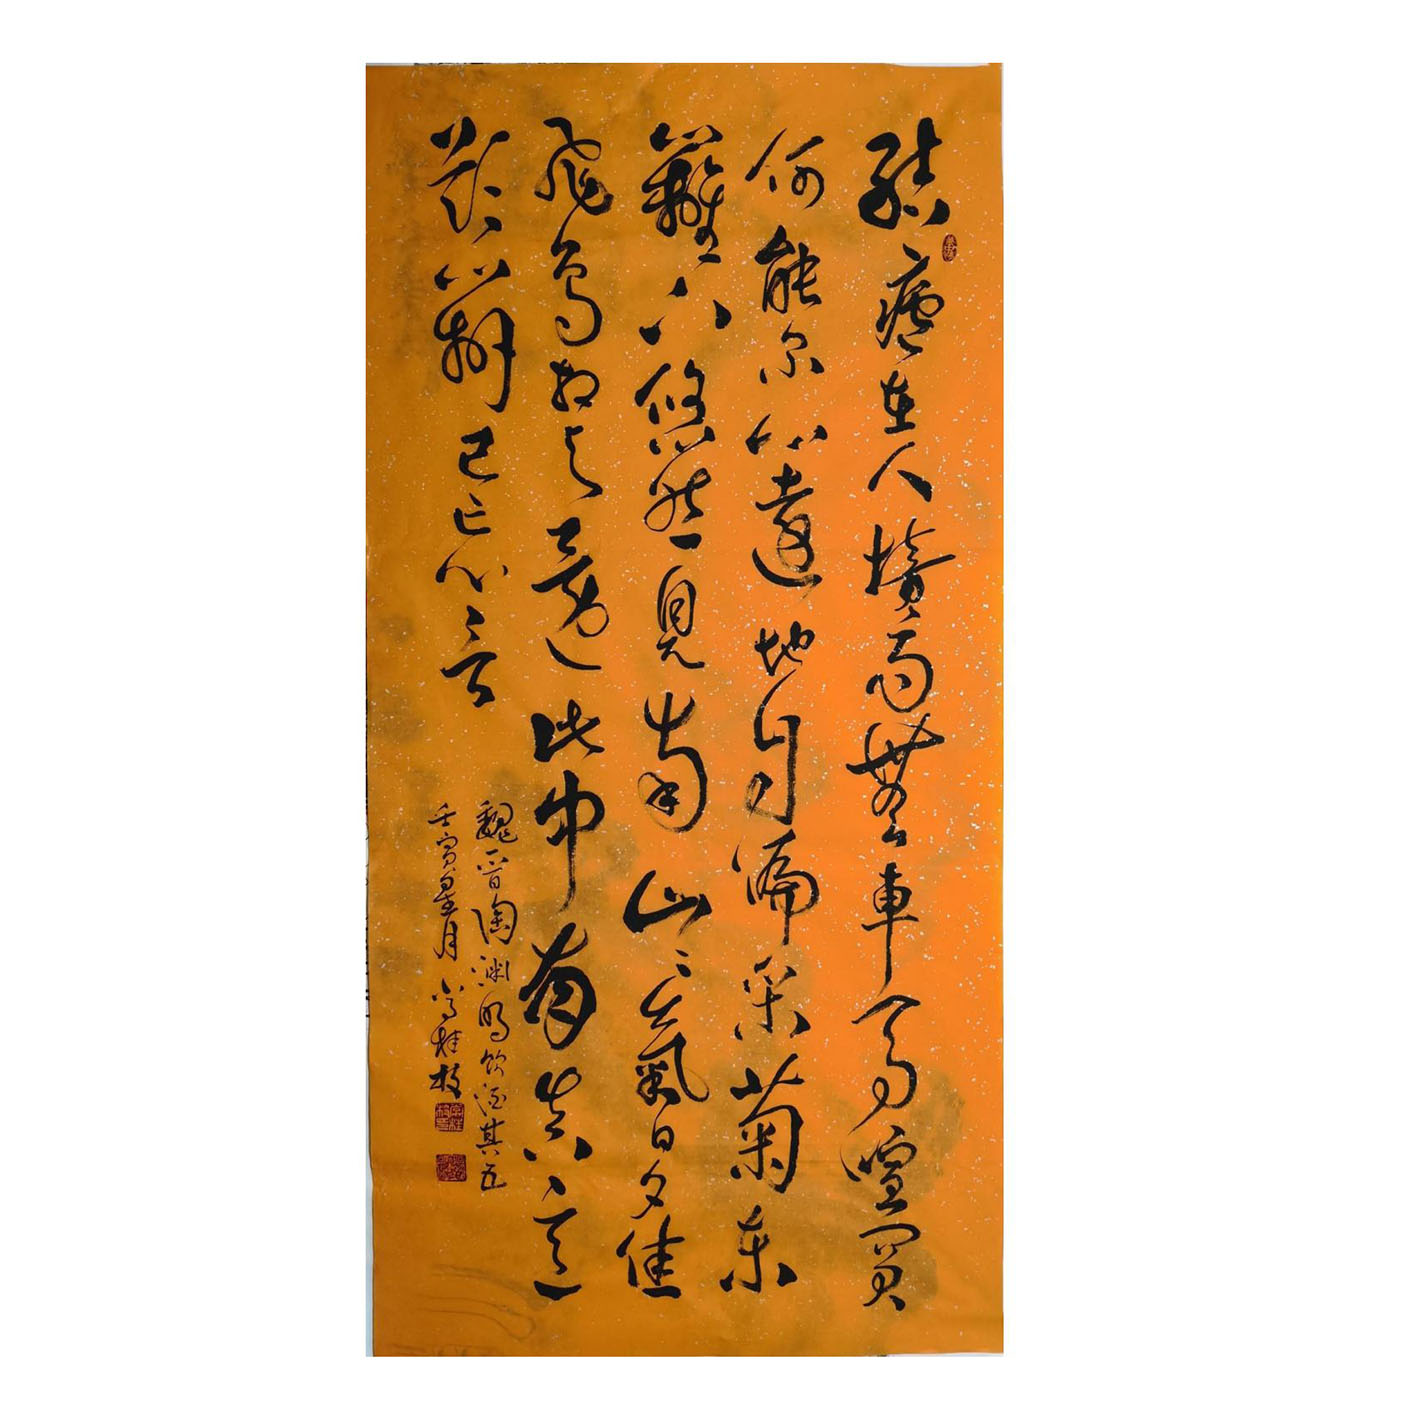 結廬在人境而無車馬喧問君
何能尔心遠地自偏采菊東
籬下悠然見南山山氣日夕佳
飛鳥相與還此中有真意
欲辨已忘言
魏晋陶渊明飲酒其五
壬寅月桂枝